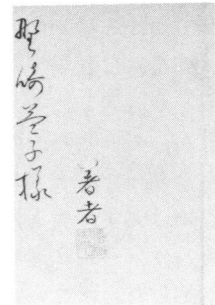 野崎茂子様
著者